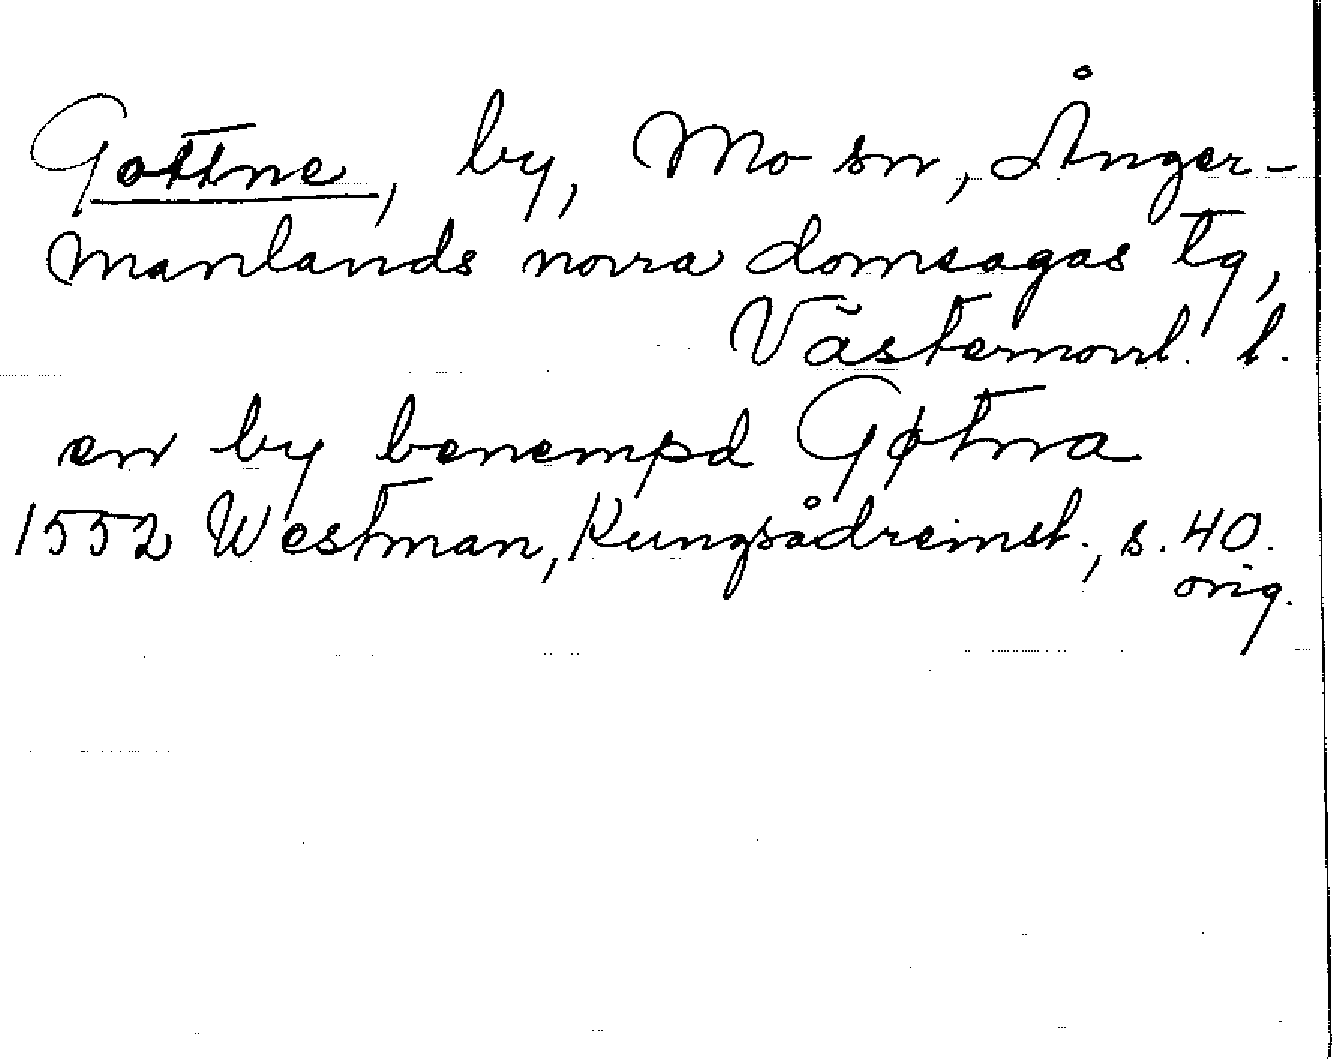 Gottne, by, Mo sn, Ånger-
manlands norra domsagas tg,
Västernorrl. l.
en by benempd Gøtna
1552 Westman, Kungsådreinst., s. 40.
orig.